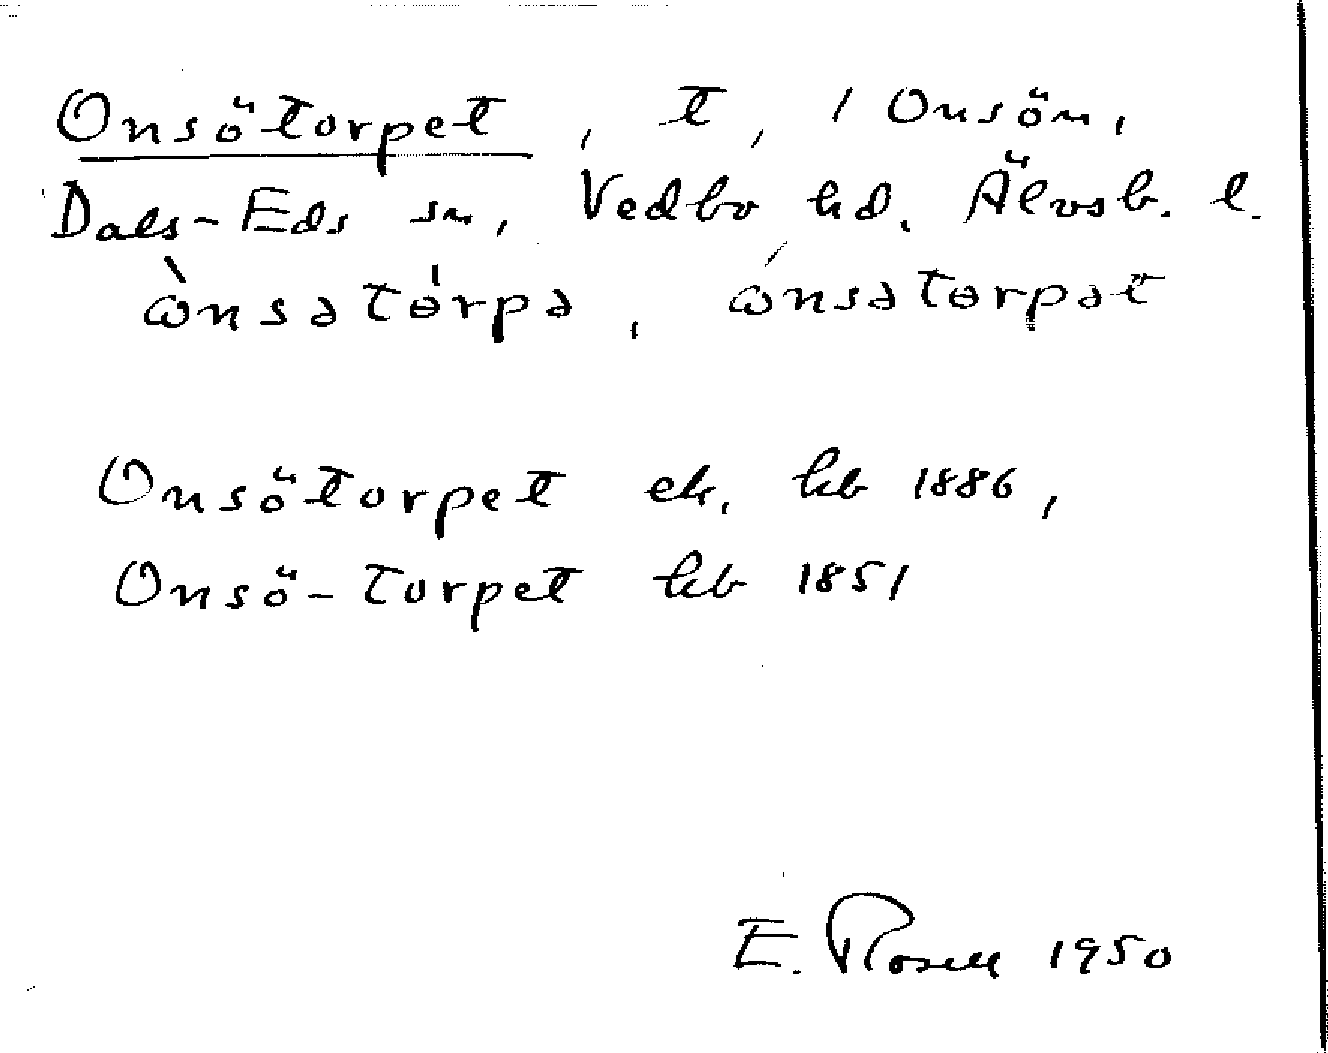 Onsötorpet, t, i Onsön,
Dals-Eds sn, Vedbo hd. Älvsb. l.
ὼnsətɵ́rpə, ώnsətɵrpət
Onsötorpet ek. hfb 1886,
Onsö-torpet hfb 1851
E. Rosell 1950